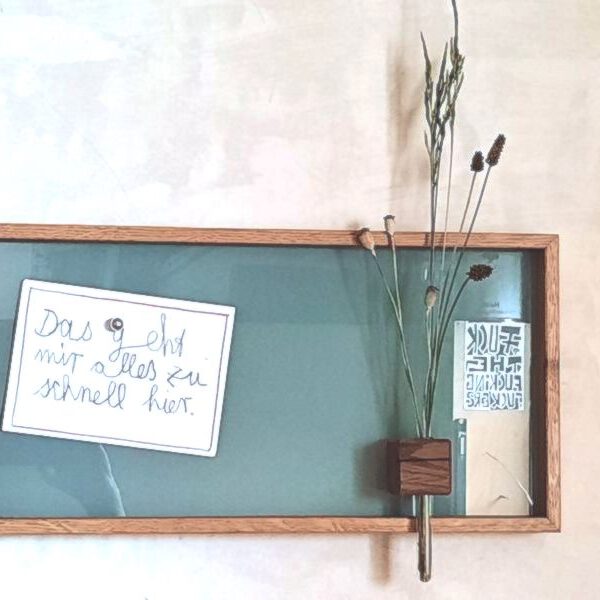 Das geht
mir alles zu
schnell hier.
FUCK
THE
FUCKING
FUCKERS